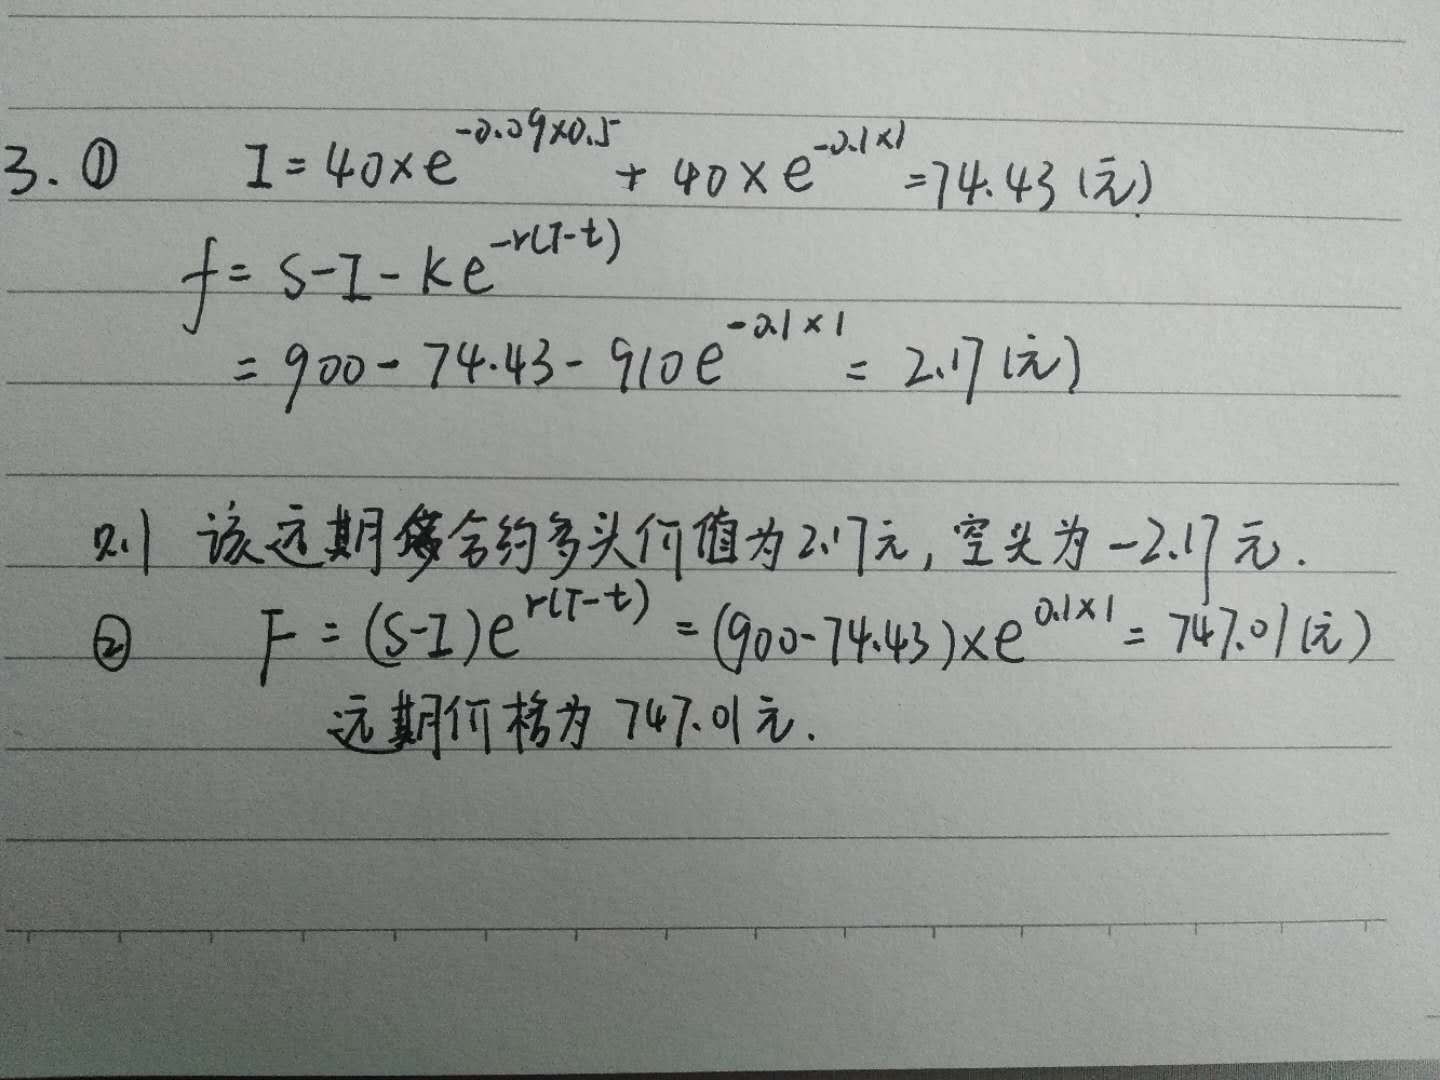 3. ① I = 40×e^{-0.09×0.5} + 40×e^{-0.1×1} = 74.43 (元)
f = S-I-Ke^{-r(T-t)}
= 900 - 74.43 - 910e^{-0.1×1} = 2.17 (元)
则 该远期合约多头价值为2.17元, 空头为-2.17元.
② F = (S-I)e^{r(T-t)} = (900-74.43)×e^{0.1×1} = 747.01 (元)
远期价格为 747.01元.